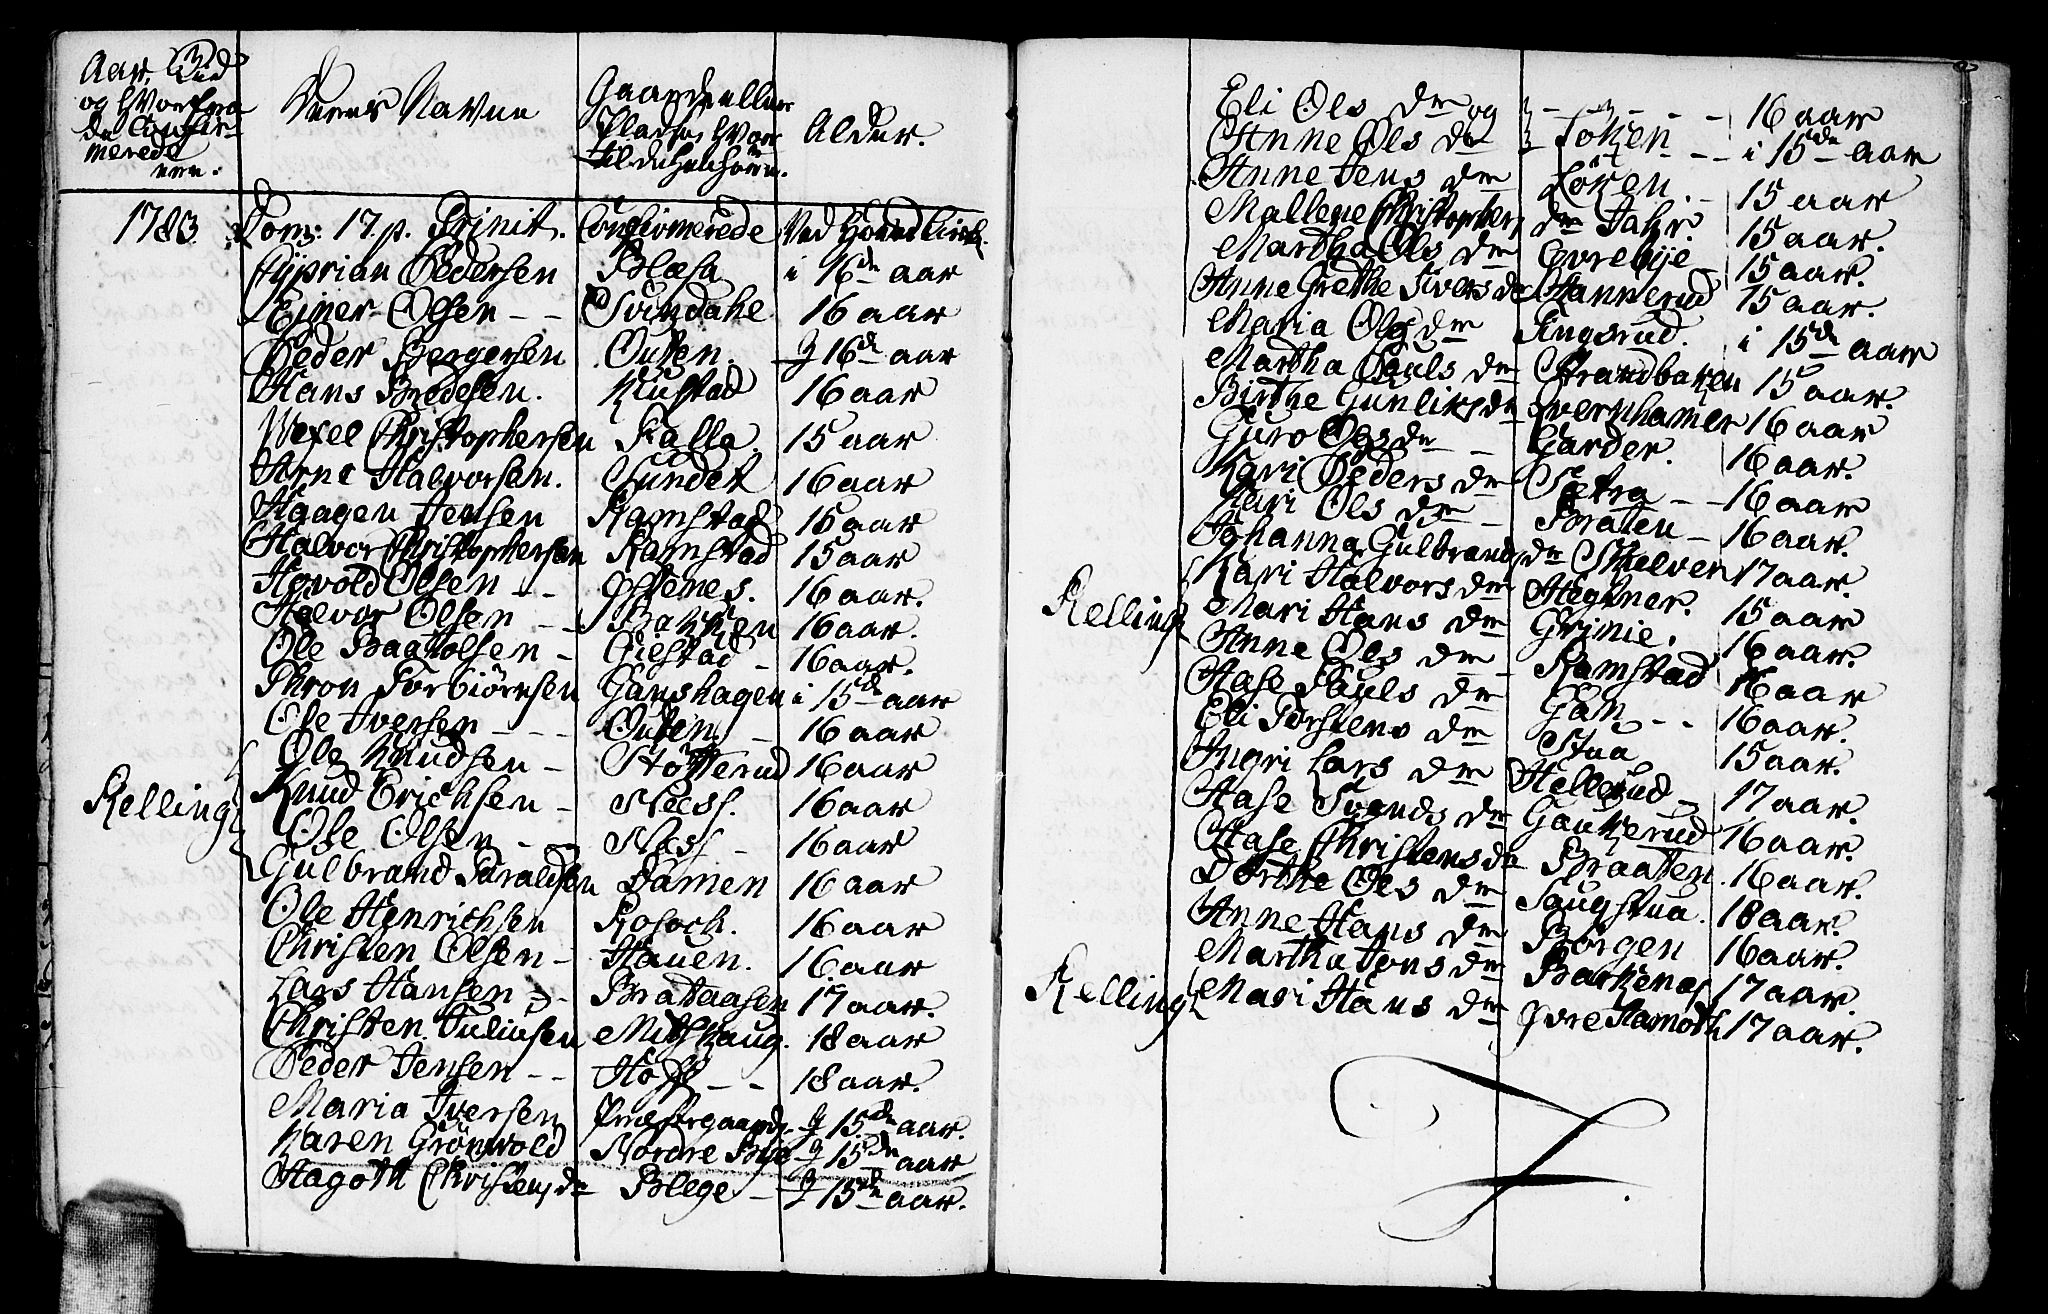 Aar, Tiid
og hvorfra
de Confir-
merede
ere.
Deres Navne
Gaarde eller
Pladse hvor
til de henhöre.
Alder.
1783 Dom: 17. p. Trinit. Confirmerede Ved Hoved Kirk.
Cyprian Pedersen Blæsa i 16de aar
Ejner Olsen - - Svindahl 16 aar
Peder Bergersen Outen. J 16de aar
Hans Bredesen. Kiustad 16 aar
Wexel Christophersen Falla. 15 aar
Arne Halvorsen. Sundet 16 aar
Haagen Jensen Ramstad 15 aar
Halvor Christophersen Ramstad 15 aar
Hovold Olsen - - Estenes. 16 aar.
Halvor Olsen - - Bakken 16 aar.
Ole Baattolsen - Gielstad - 16 aar.
Thron Torbiörnsen Ganshagen i 15de aar
Ole Iversen - - - Outen - 16 aar
Ole Knudsen - Stötterud 16 aar
Relling Knud Erichsen - Næss. 16 aar
Ole Olsen - - Næss - 16 aar
Gulbrand Haraldsen Damen 16 aar
Ole Henrichsen Rosoch. 16 aar
Christen Olsen - Hauen. 16 aar
Lars Hansen - - Brataasen 17 aar.
Christen Juliusen Mitshaug. 18 aar
Peder Jensen - - Hoff - - 18 aar.
Maria Iversen Præstegaard. J 15de aar.
Karen Grönvold Nordre Bye J 15de aar
Hagoth Christens dr Blege - J 15de aar.
Eli Ols dr og - - - - 16 aar
Anne Ols dr Foken - - i 15de aar
Anne Jens dr Löken - 15 aar
Mallene Christophers dr Fahr 15 aar.
Martha Ols dr Evrebye 15 aar.
Anne Grethe Sivers dr Hannerud 15 aar.
Maria Ols dr Tingsrud. i 15de aar
Martha Pauls dr Strandbaken 15 aar.
Birthe Gunliks dr Svernhamer 16 aar
Guro Ols dr - Garder. 16 aar.
Kari Peders dr Sætra - - 16 aar
Kari Ols dr - Braten - 16 aar.
Johanna Gulbrands dr Skulven 17 aar.
Relling Kari Halvors dr Hegtner. 15 aar
Mari Hans dr Grinie. 16 aar.
Anne Ols dr - Ramstad 16 aar
Aase Pauls dr Gam - - 16 aar.
Eli Torstens dr Stua 15 aar.
Ingri Lars dr Hellerud - 17 aar.
Aase Svends dr Gaukerud 16 aar.
Aase Christens dr Braaten. 16 aar.
Dorthe Ols dr Saugstua. 18 aar.
Anne Hans dr Borgen 16 aar.
Martha Jons dr Bakkenes 17 aar.
Relling Mari Hans dr Övre Hamoth 17 aar.